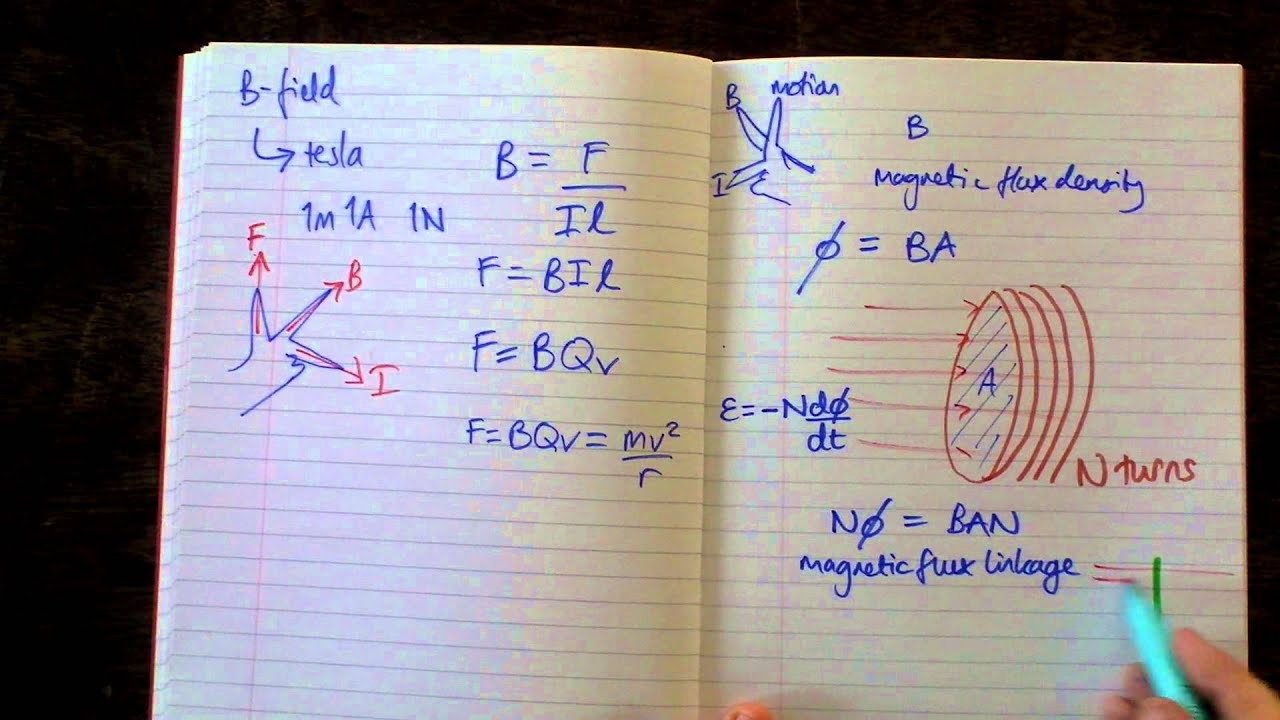 B-field
↳ tesla
1m 1A 1N
B = F/Il
F
B
I
F = BIl
F = BQv
F = BQv = mv²/r
B motion
I
B
magnetic flux density
ϕ = BA
A
ε = -N dϕ/dt
N turns
Nϕ = BAN
magnetic flux linkage